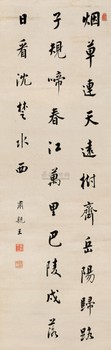 烟草連天遠樹齊岳陽歸路
子規啼春江萬里巴陵戍落
日看沈楚水西
肅親王